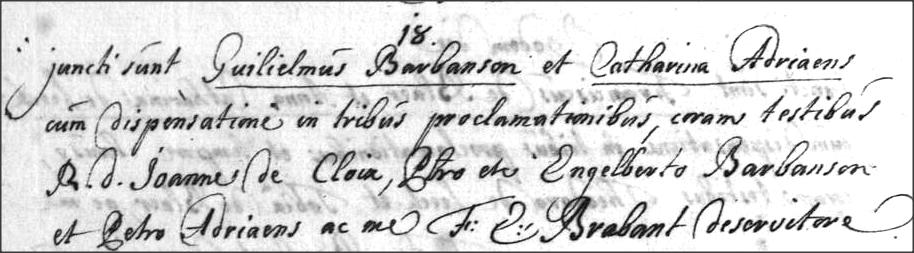 18.
juncti sunt Guilielmus Barbanson et Catharina Adriaens
cum dispensatione in tribus proclamationibus, coram testibus
R. d. Joanne de Cloix, Petro et Engelberto Barbanson
et Petro Adriaens ac me F: Brabant deservitore